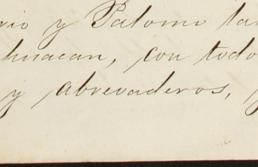 rio y Palomo la
huacan, con todo
y abrevaderos, y